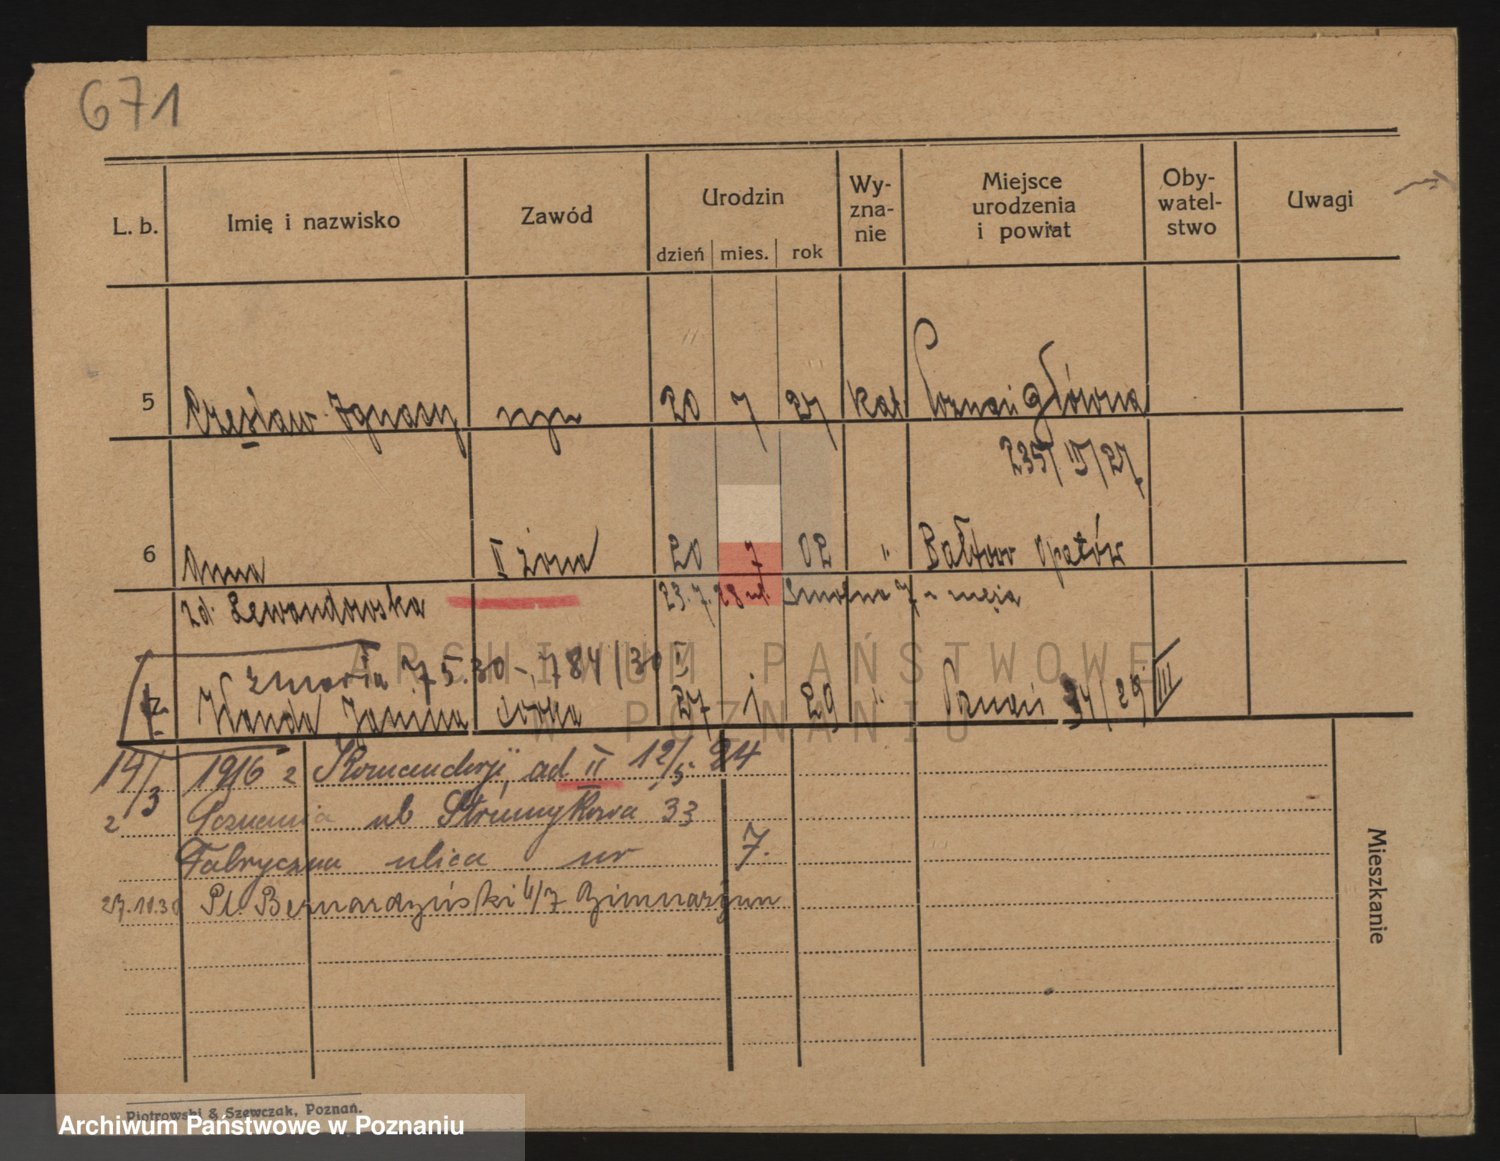 671
L. b. Imię i nazwisko Zawód Urodzin dzień mies. rok Wy-zna-nie Miejsce urodzenia i powiat Oby-watel-stwo Uwagi
5 Czesław Ignacy syn 20 7 27 kat Poznań Główna
235/ III/27.
6 Anna II żona 20 7 02 " Bałtów Opatów
zd. Lewandowska 23.7.28 ul. Smolna 7 u męża
zmarła 7 5.30 - 784/30 I
7 Wanda Janina córka 27 1 29 " Poznań 34/29 III
14/3 1916 z Komenderji, ad II 12/5 24
2 Poznania ul Strumykowa 33
Fabryczna ulica nr 7.
27.10.30 Pl. Bernardyński 1/7 Gimnazjum
Mieszkanie
Piotrowski & Szewczak, Poznań.
ARCHIWUM PAŃSTWOWE
W POZNANIU
Archiwum Państwowe w Poznaniu